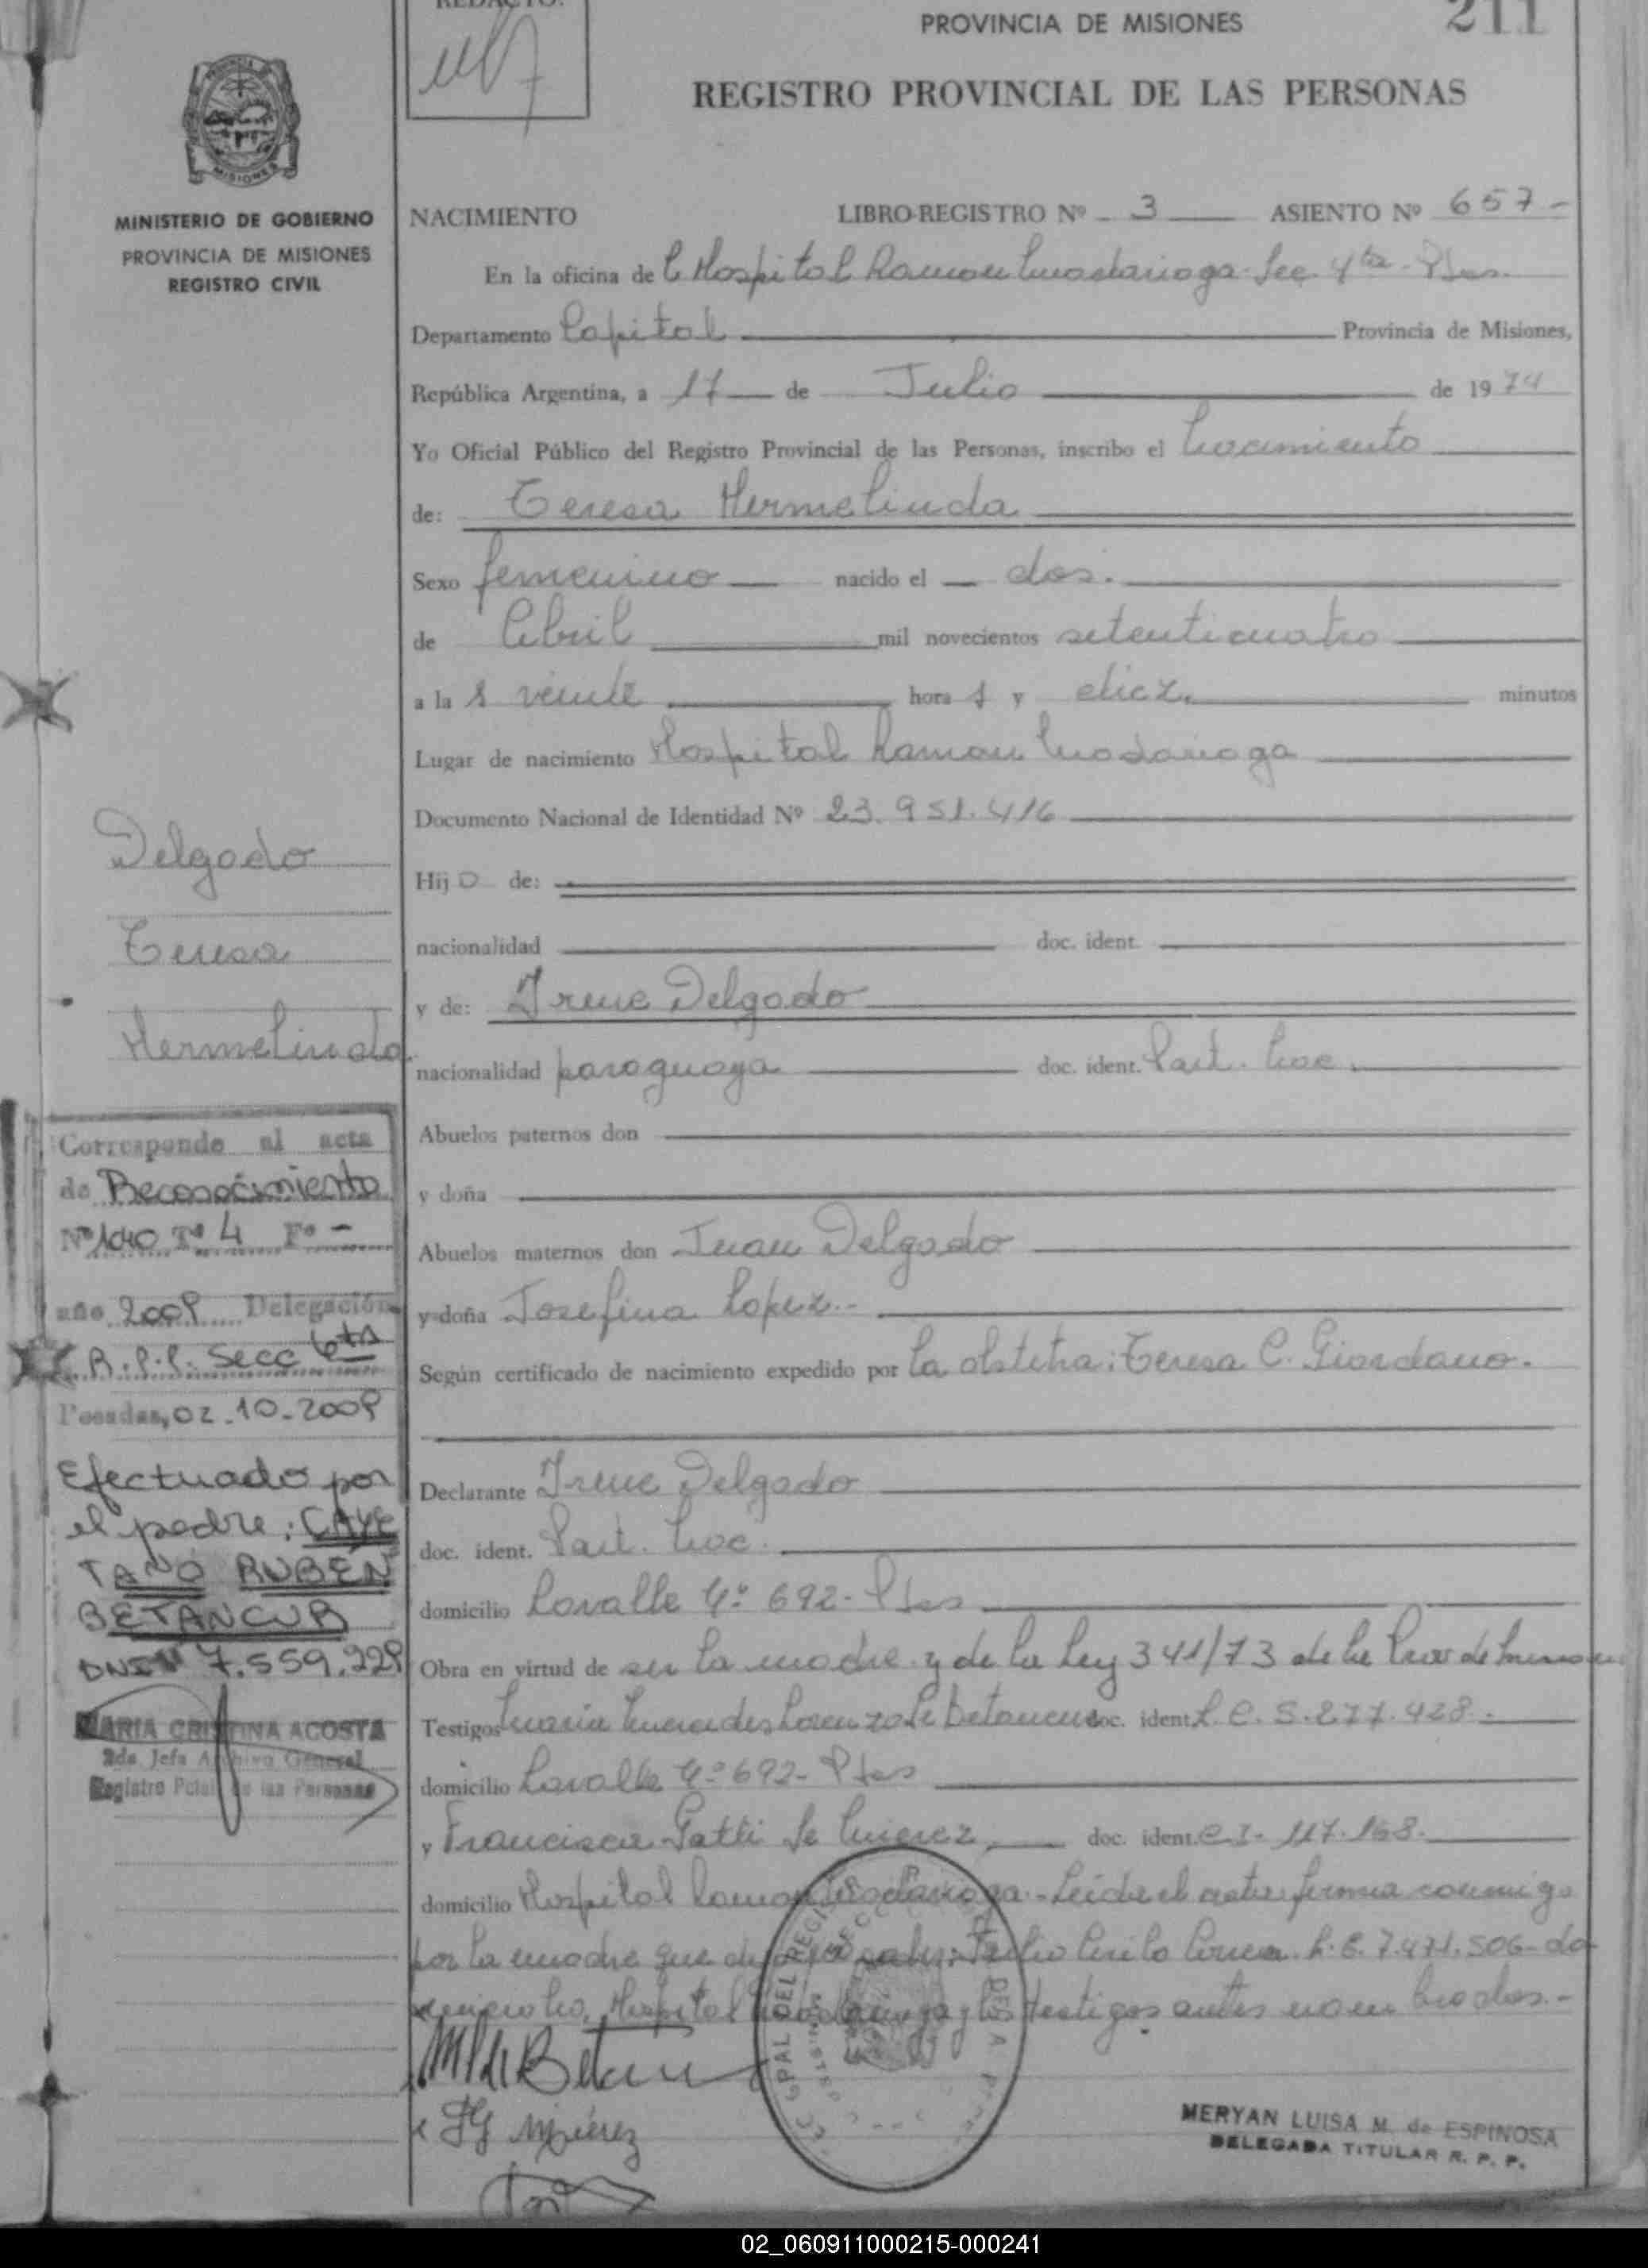 REDACTO:
PROVINCIA DE MISIONES
211
REGISTRO PROVINCIAL DE LAS PERSONAS
PROVINCIA DE
MISIONES
MINISTERIO DE GOBIERNO
PROVINCIA DE MISIONES
REGISTRO CIVIL
NACIMIENTO LIBRO-REGISTRO Nº 3 ASIENTO Nº 657-
En la oficina de l Hospital Ramon Madariaga Sec 4ta
Departamento Capital Provincia de Misiones,
República Argentina, a 17 de Julio de 1974
Yo Oficial Público del Registro Provincial de las Personas, inscribo el Nacimiento
de: Teresa Hermelinda
Sexo femenino nacido el dos.
de Abril mil novecientos setenticuatro
a la s veinte hora s y diez. minutos
Lugar de nacimiento Hospital Ramon Madariaga
Documento Nacional de Identidad Nº 23.951.416
Hij a de:
nacionalidad doc. ident.
y de: Irene Delgado
nacionalidad paraguaya doc. ident. Part. Nac.
Abuelos paternos don
y doña
Abuelos maternos don Juan Delgado
y doña Josefina Lopez.-
Según certificado de nacimiento expedido por la obstetra: Teresa C. Giordano.
Declarante Irene Delgado
doc. ident. Part. Nac.
domicilio Lavalle Nº 692-
Obra en virtud de ser la madre y de la Ley 341/73 de la
Testigos Maria Mercedes Lorenzo de Betancur doc. ident. L.C. 5.277.428.-
domicilio Lavalle Nº 692-
y Francisca Gatti de doc. ident. C.I. 117.168.
domicilio Hospital Ramon Madariaga - Leida el acta firma conmigo
por la madre que L.E. 7.471.506-
Hospital Madariaga y los testigos antes nombrados.-
MERYAN LUISA M. de ESPINOSA
DELEGADA TITULAR R. P. P.
Delgado
Teresa
Hermelinda
Corresponde al acta
de Reconocimiento
Nº 1040 Tº 4 Fº -
año 2009 Delegación
R.P.P. Secc 6ta
Posadas, 02-10-2009
Efectuado por
el padre: CAYE
TANO RUBEN
BETANCUR
DNI Nº 7.559.229
MARIA CRISTINA ACOSTA
2da Jefa Archivo General
Registro Pcial de las Personas
02_060911000215-000241